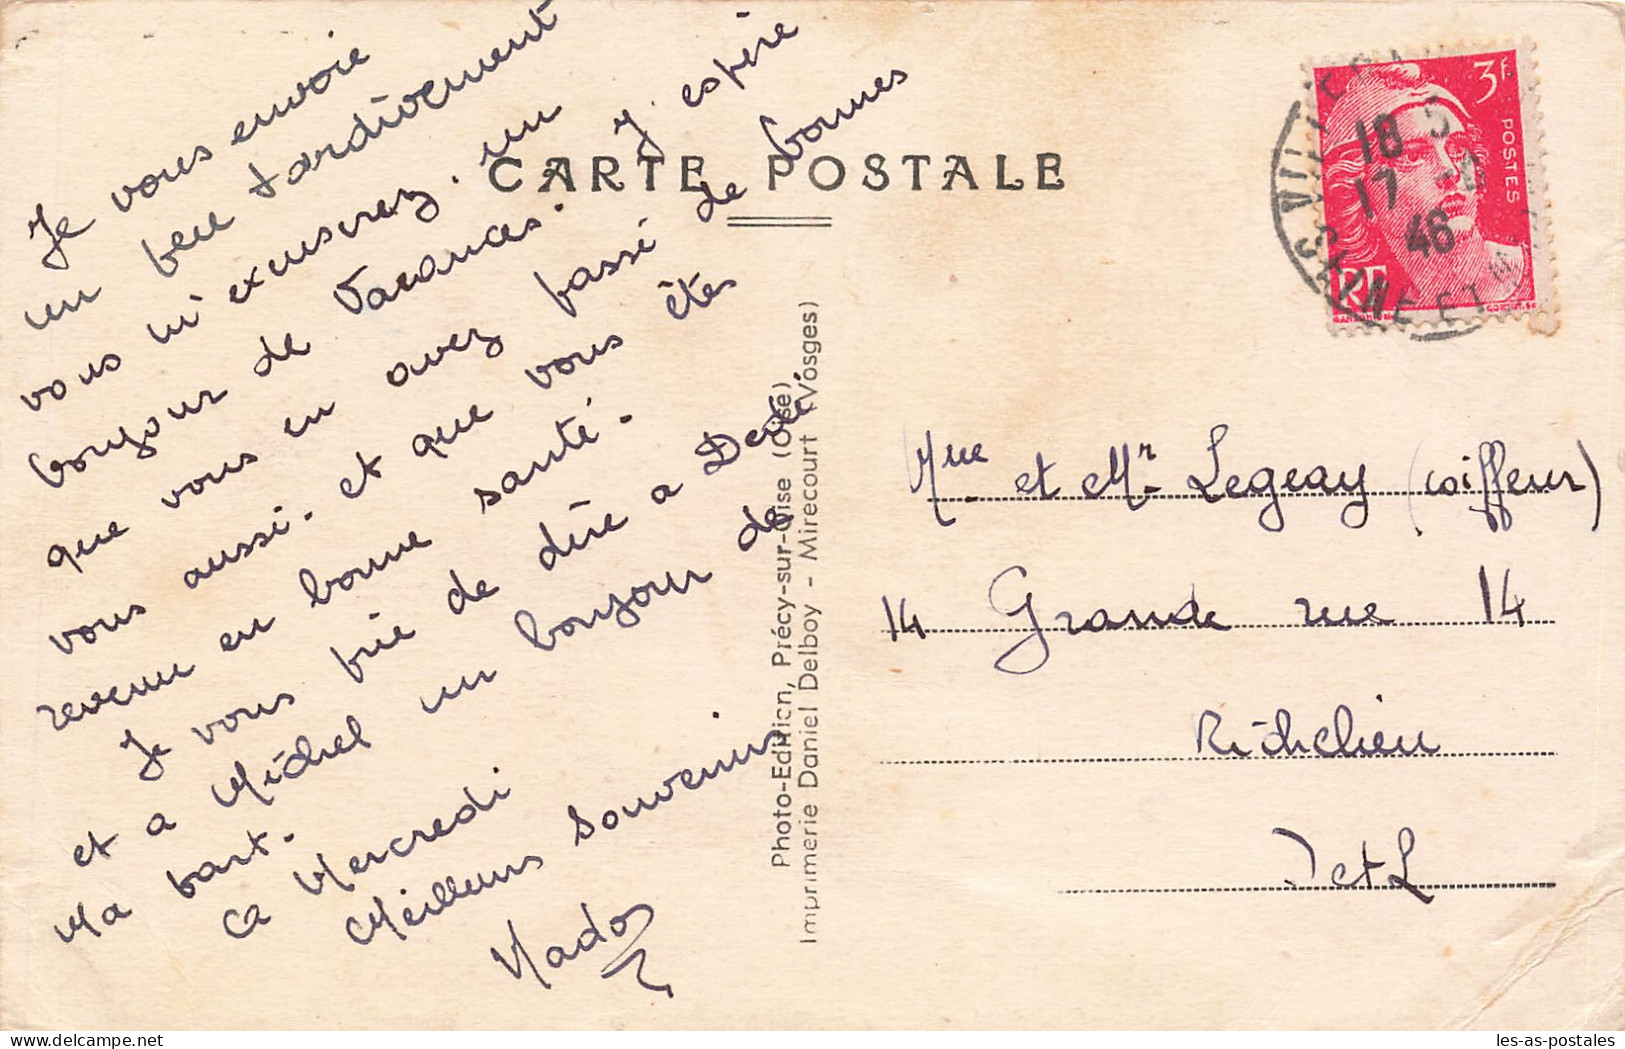 CARTE POSTALE
Je vous envoie
un peu tardivement
vous m'excuserez. un
bonjour de Vacances. J'y espère
que vous en avez passé de bonnes
vous aussi. et que vous êtes
revenu en bonne santé.
Je vous prie de dire a Dédé
et a Michel un bonjour de
Ma part.
Ca Mercredi
Meilleurs Souvenirs
Mado
Photo-Edition, Précy-sur-Oise (Oise)
Imprimerie Daniel Delboy - Mirecourt (Vosges)
3F
POSTES
RF
GANDON
18
17
46
SEINE ET
Mme et Mr Legeay (coiffeur)
14 Grande rue 14
Richelieu
I et L
les-as-postales